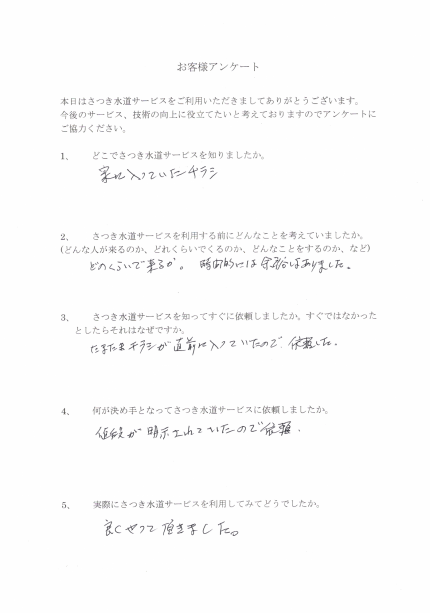 お客様アンケート
本日はさつき水道サービスをご利用いただきましてありがとうございます。
今後のサービス、技術の向上に役立てたいと考えておりますのでアンケートに
ご協力ください。
1、 どこでさつき水道サービスを知りましたか。
家に入っていたチラシ
2、 さつき水道サービスを利用する前にどんなことを考えていましたか。
(どんな人が来るのか、どれくらいでくるのか、どんなことをするのか、など)
どのくらいで来るか。 時間的には余裕はありました。
3、 さつき水道サービスを知ってすぐに依頼しましたか。すぐではなかった
としたらそれはなぜですか。
たまたまチラシが直前に入っていたので依頼した。
4、 何が決め手となってさつき水道サービスに依頼しましたか。
値段が明示されていたので依頼。
5、 実際にさつき水道サービスを利用してみてどうでしたか。
良くやって頂きました。